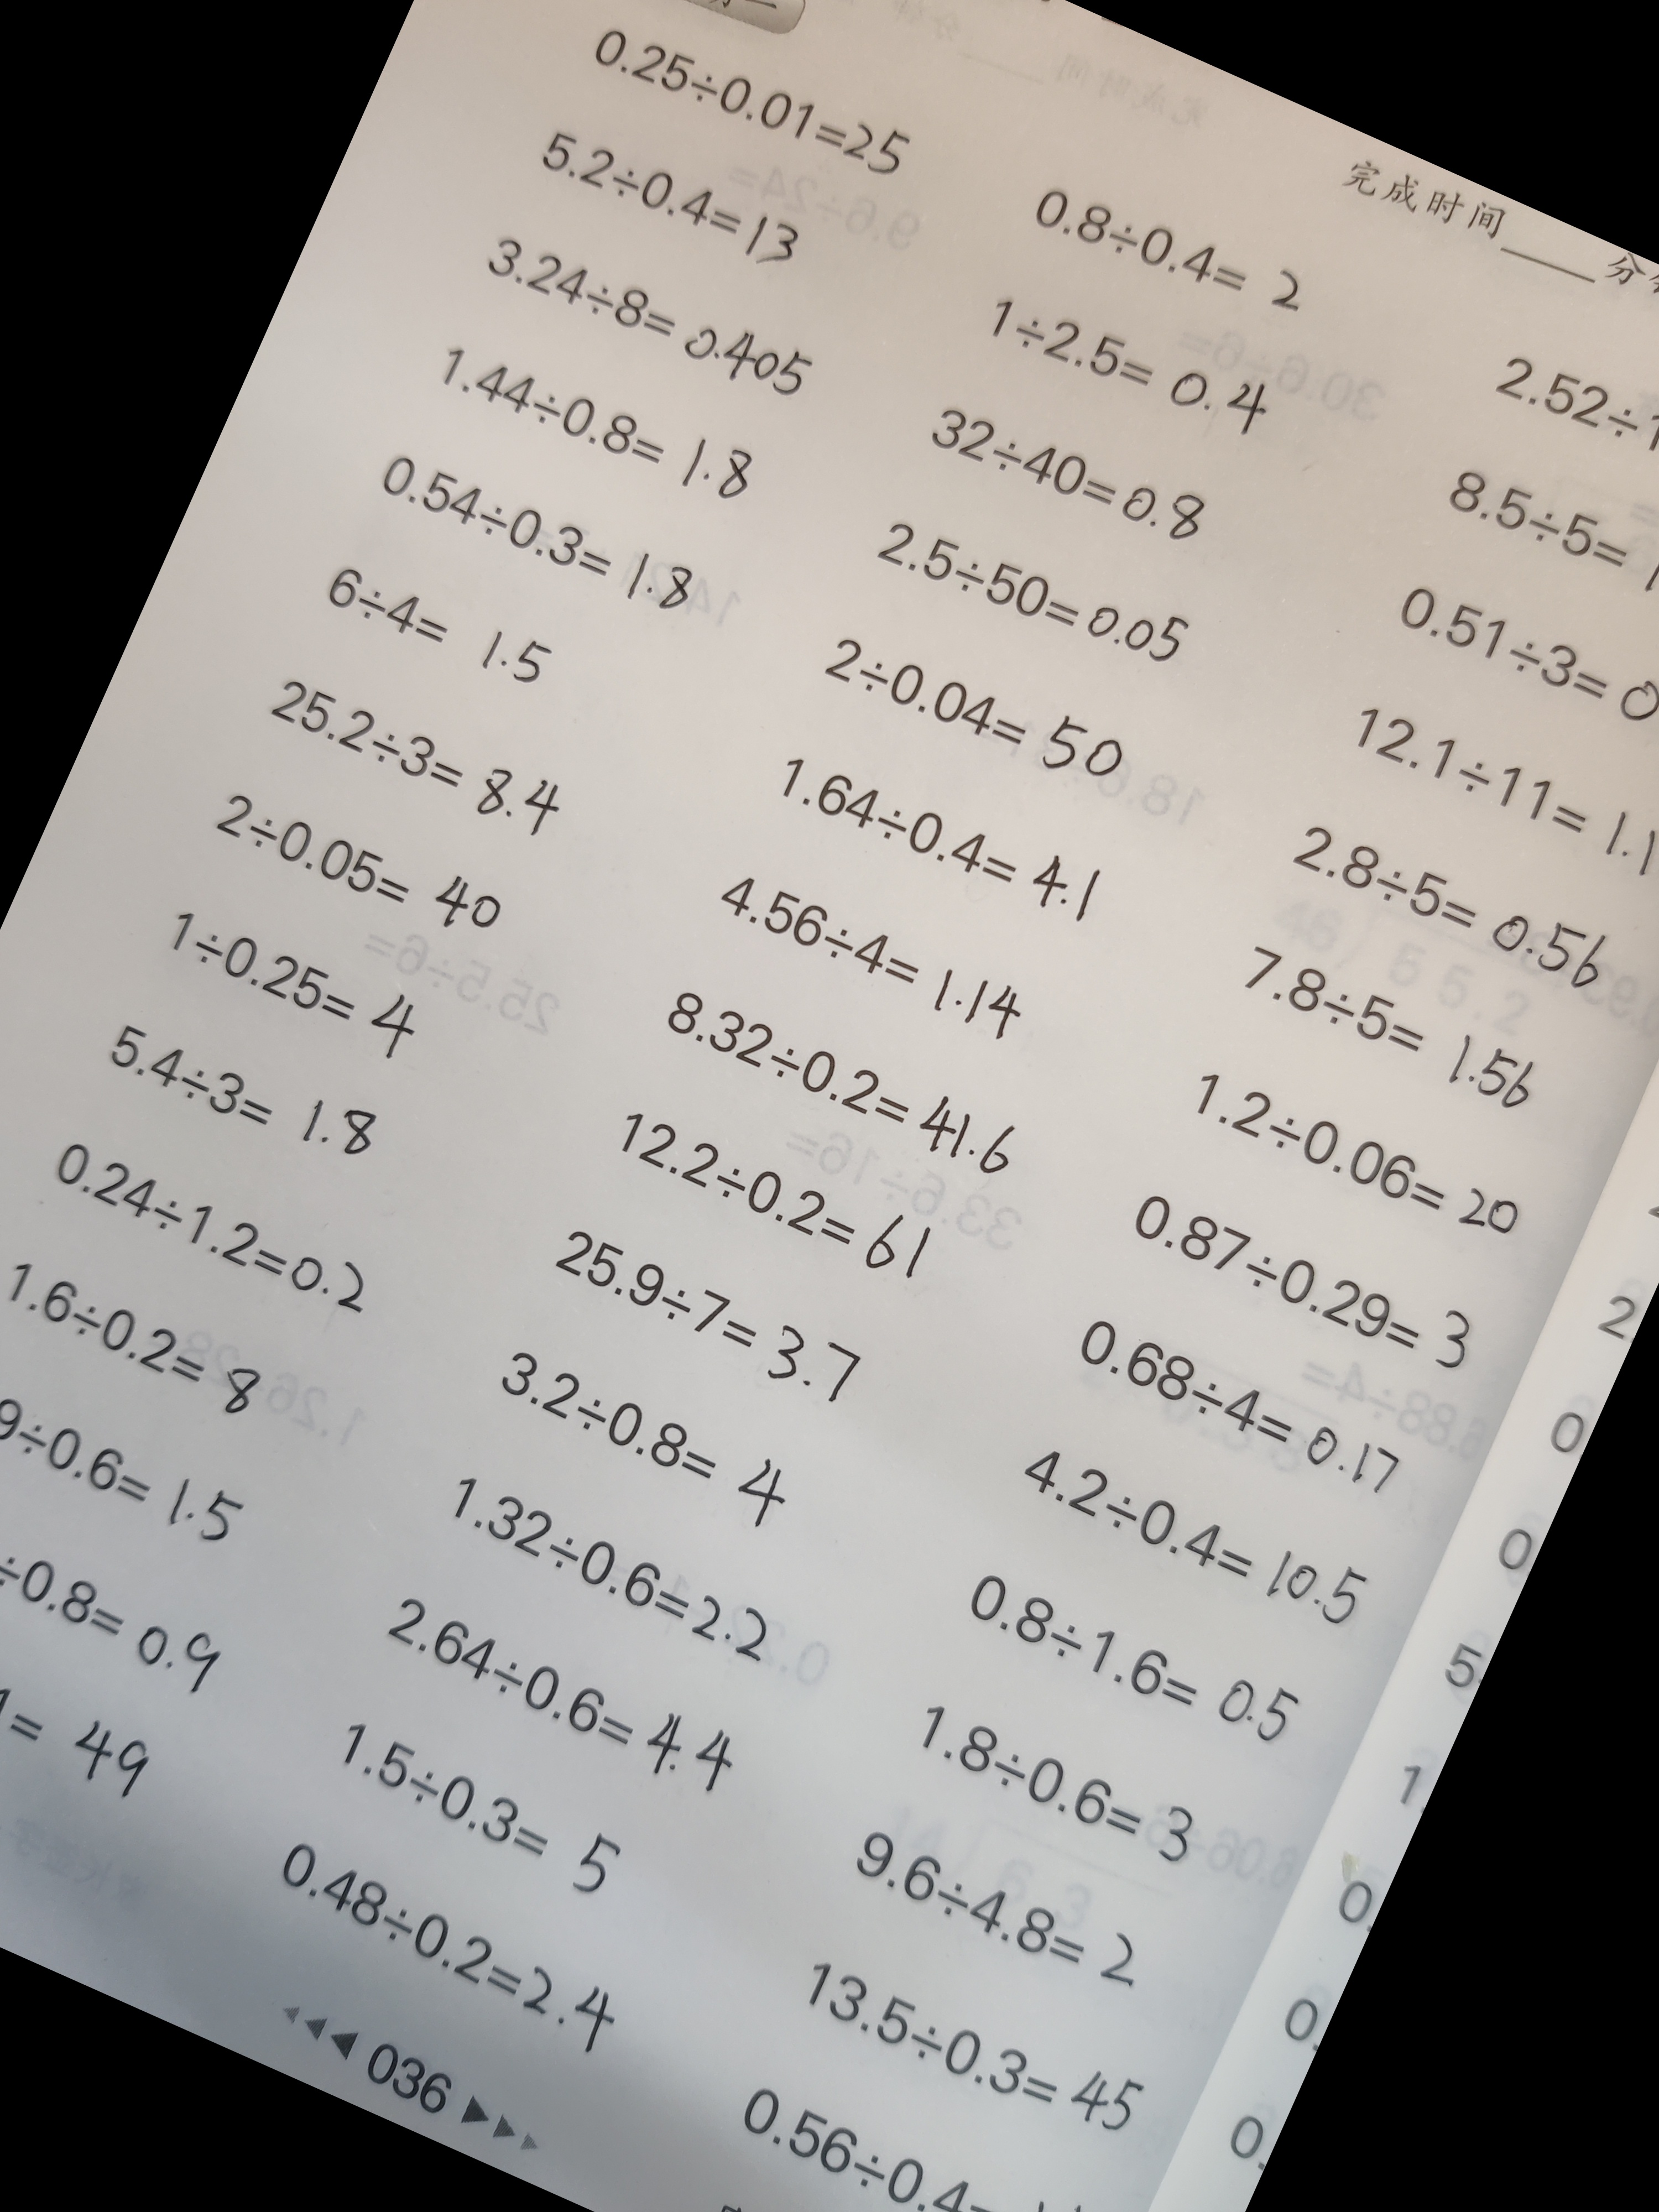 完成时间____分
0.25÷0.01=25
5.2÷0.4=13
3.24÷8=0.405
1.44÷0.8=1.8
0.54÷0.3=1.8
6÷4=1.5
25.2÷3=8.4
2÷0.05=40
1÷0.25=4
5.4÷3=1.8
0.24÷1.2=0.2
1.6÷0.2=8
9÷0.6=1.5
÷0.8=0.9
=49
0.8÷0.4=2
1÷2.5=0.4
32÷40=0.8
2.5÷50=0.05
2÷0.04=50
1.64÷0.4=4.1
4.56÷4=1.14
8.32÷0.2=41.6
12.2÷0.2=61
25.9÷7=3.7
3.2÷0.8=4
1.32÷0.6=2.2
2.64÷0.6=4.4
1.5÷0.3=5
0.48÷0.2=2.4
2.52÷1
8.5÷5=
0.51÷3=0
12.1÷11=1.1
2.8÷5=0.56
7.8÷5=1.56
1.2÷0.06=20
0.87÷0.29=3
0.68÷4=0.17
4.2÷0.4=10.5
0.8÷1.6=0.5
1.8÷0.6=3
9.6÷4.8=2
13.5÷0.3=45
0.56÷0.4
2
0
0
5.
1.
0.
0.
0.
036